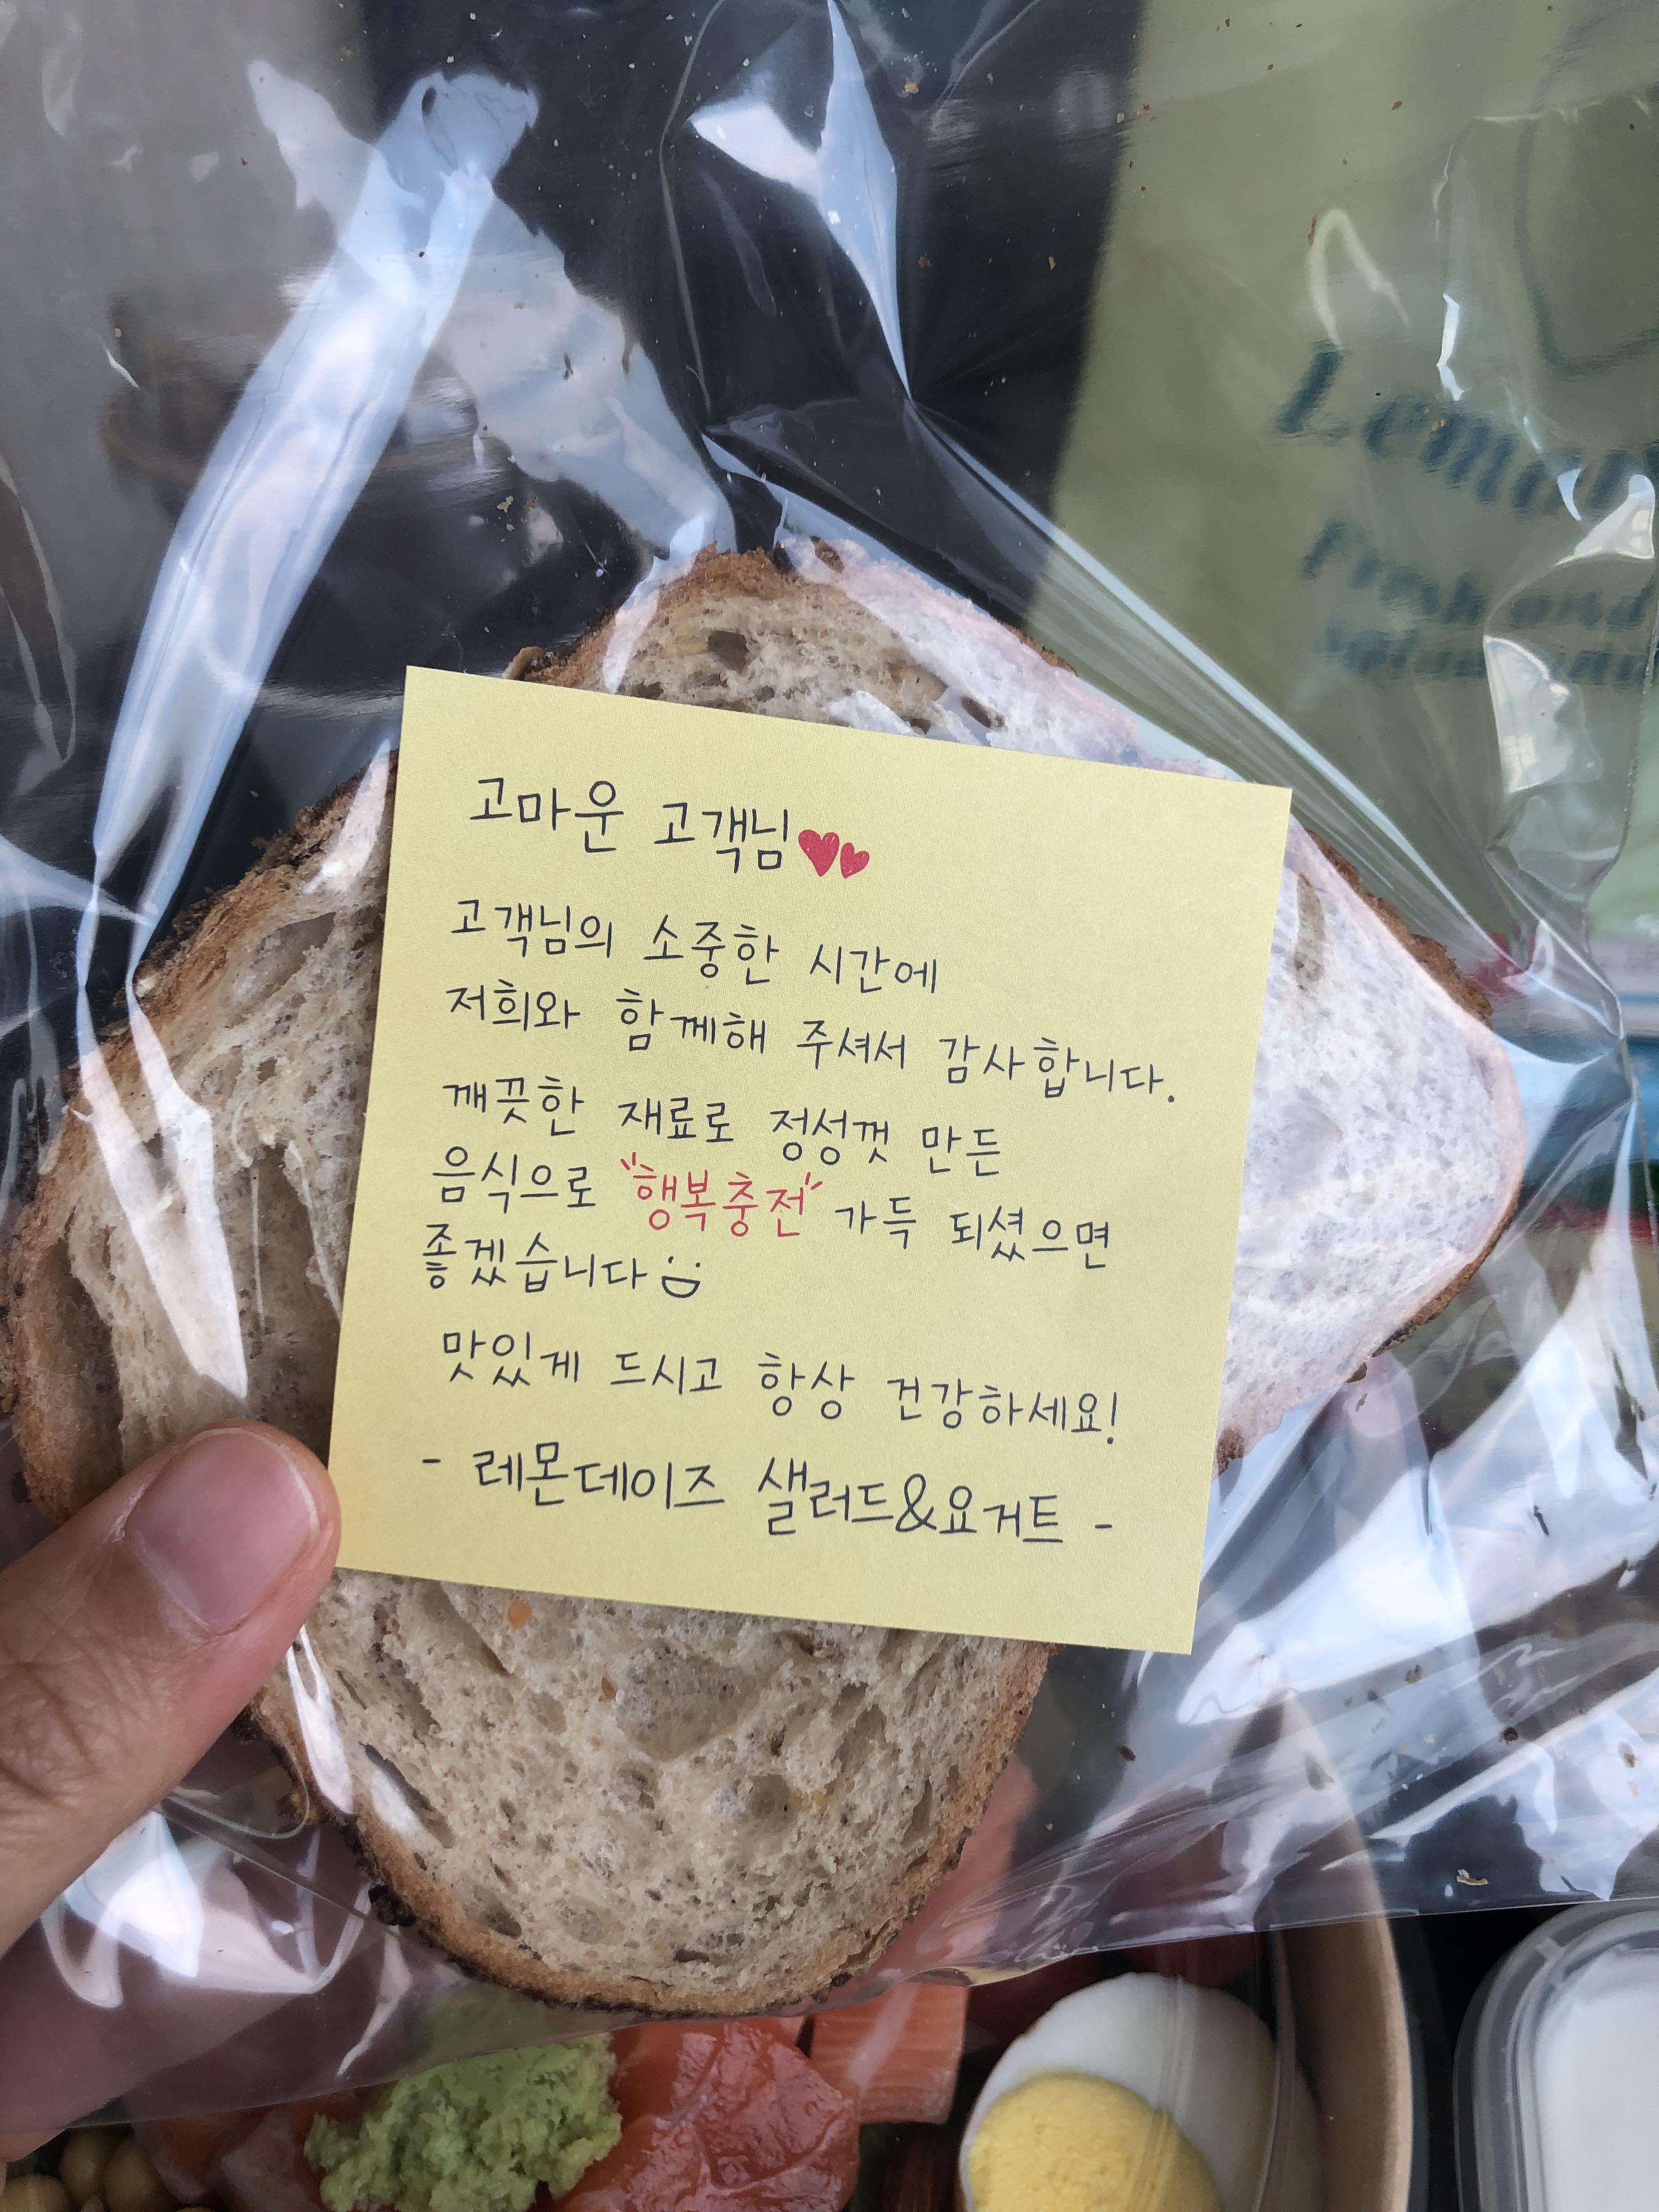 고마운 고객님
고객님의 소중한 시간에
저희와 함께해 주셔서 감사합니다.
깨끗한 재료로 정성껏 만든
음식으로 "행복충전" 가득 되셨으면
좋겠습니다
맛있게 드시고 항상 건강하세요!
- 레몬데이즈 샐러드&요거트 -
Lemon
Fresh and